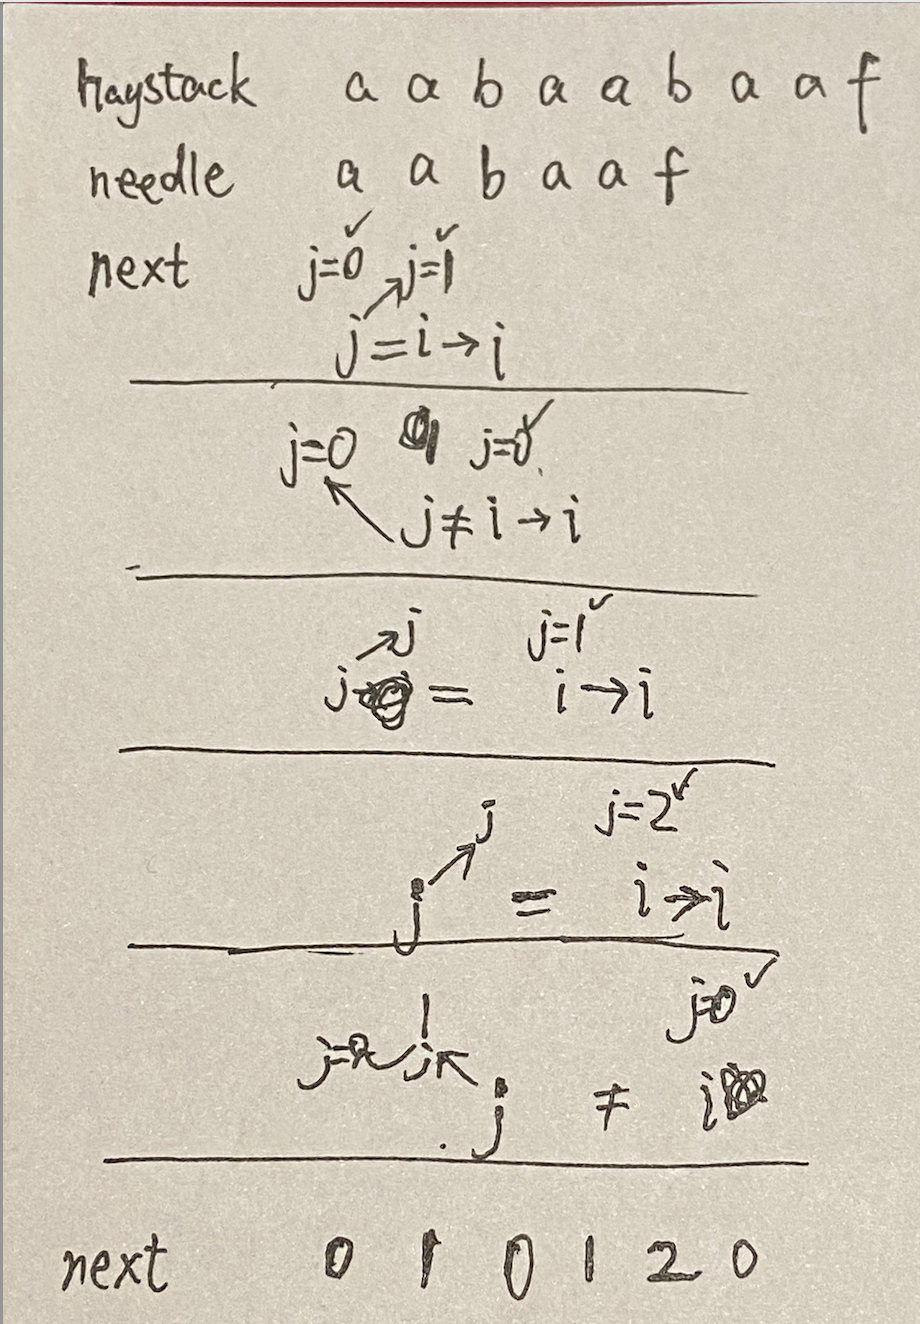 haystack a a b a a b a a f
needle a a b a a f
next j=0 ✓ j=1 ✓
j = i → i
j=0 j=0 ✓
j ≠ i → i
j j=1 ✓
j = i → i
j j=2 ✓
j = i → i
j=0 ✓
1
j=0 j
j ≠ i
next 0 1 0 1 2 0